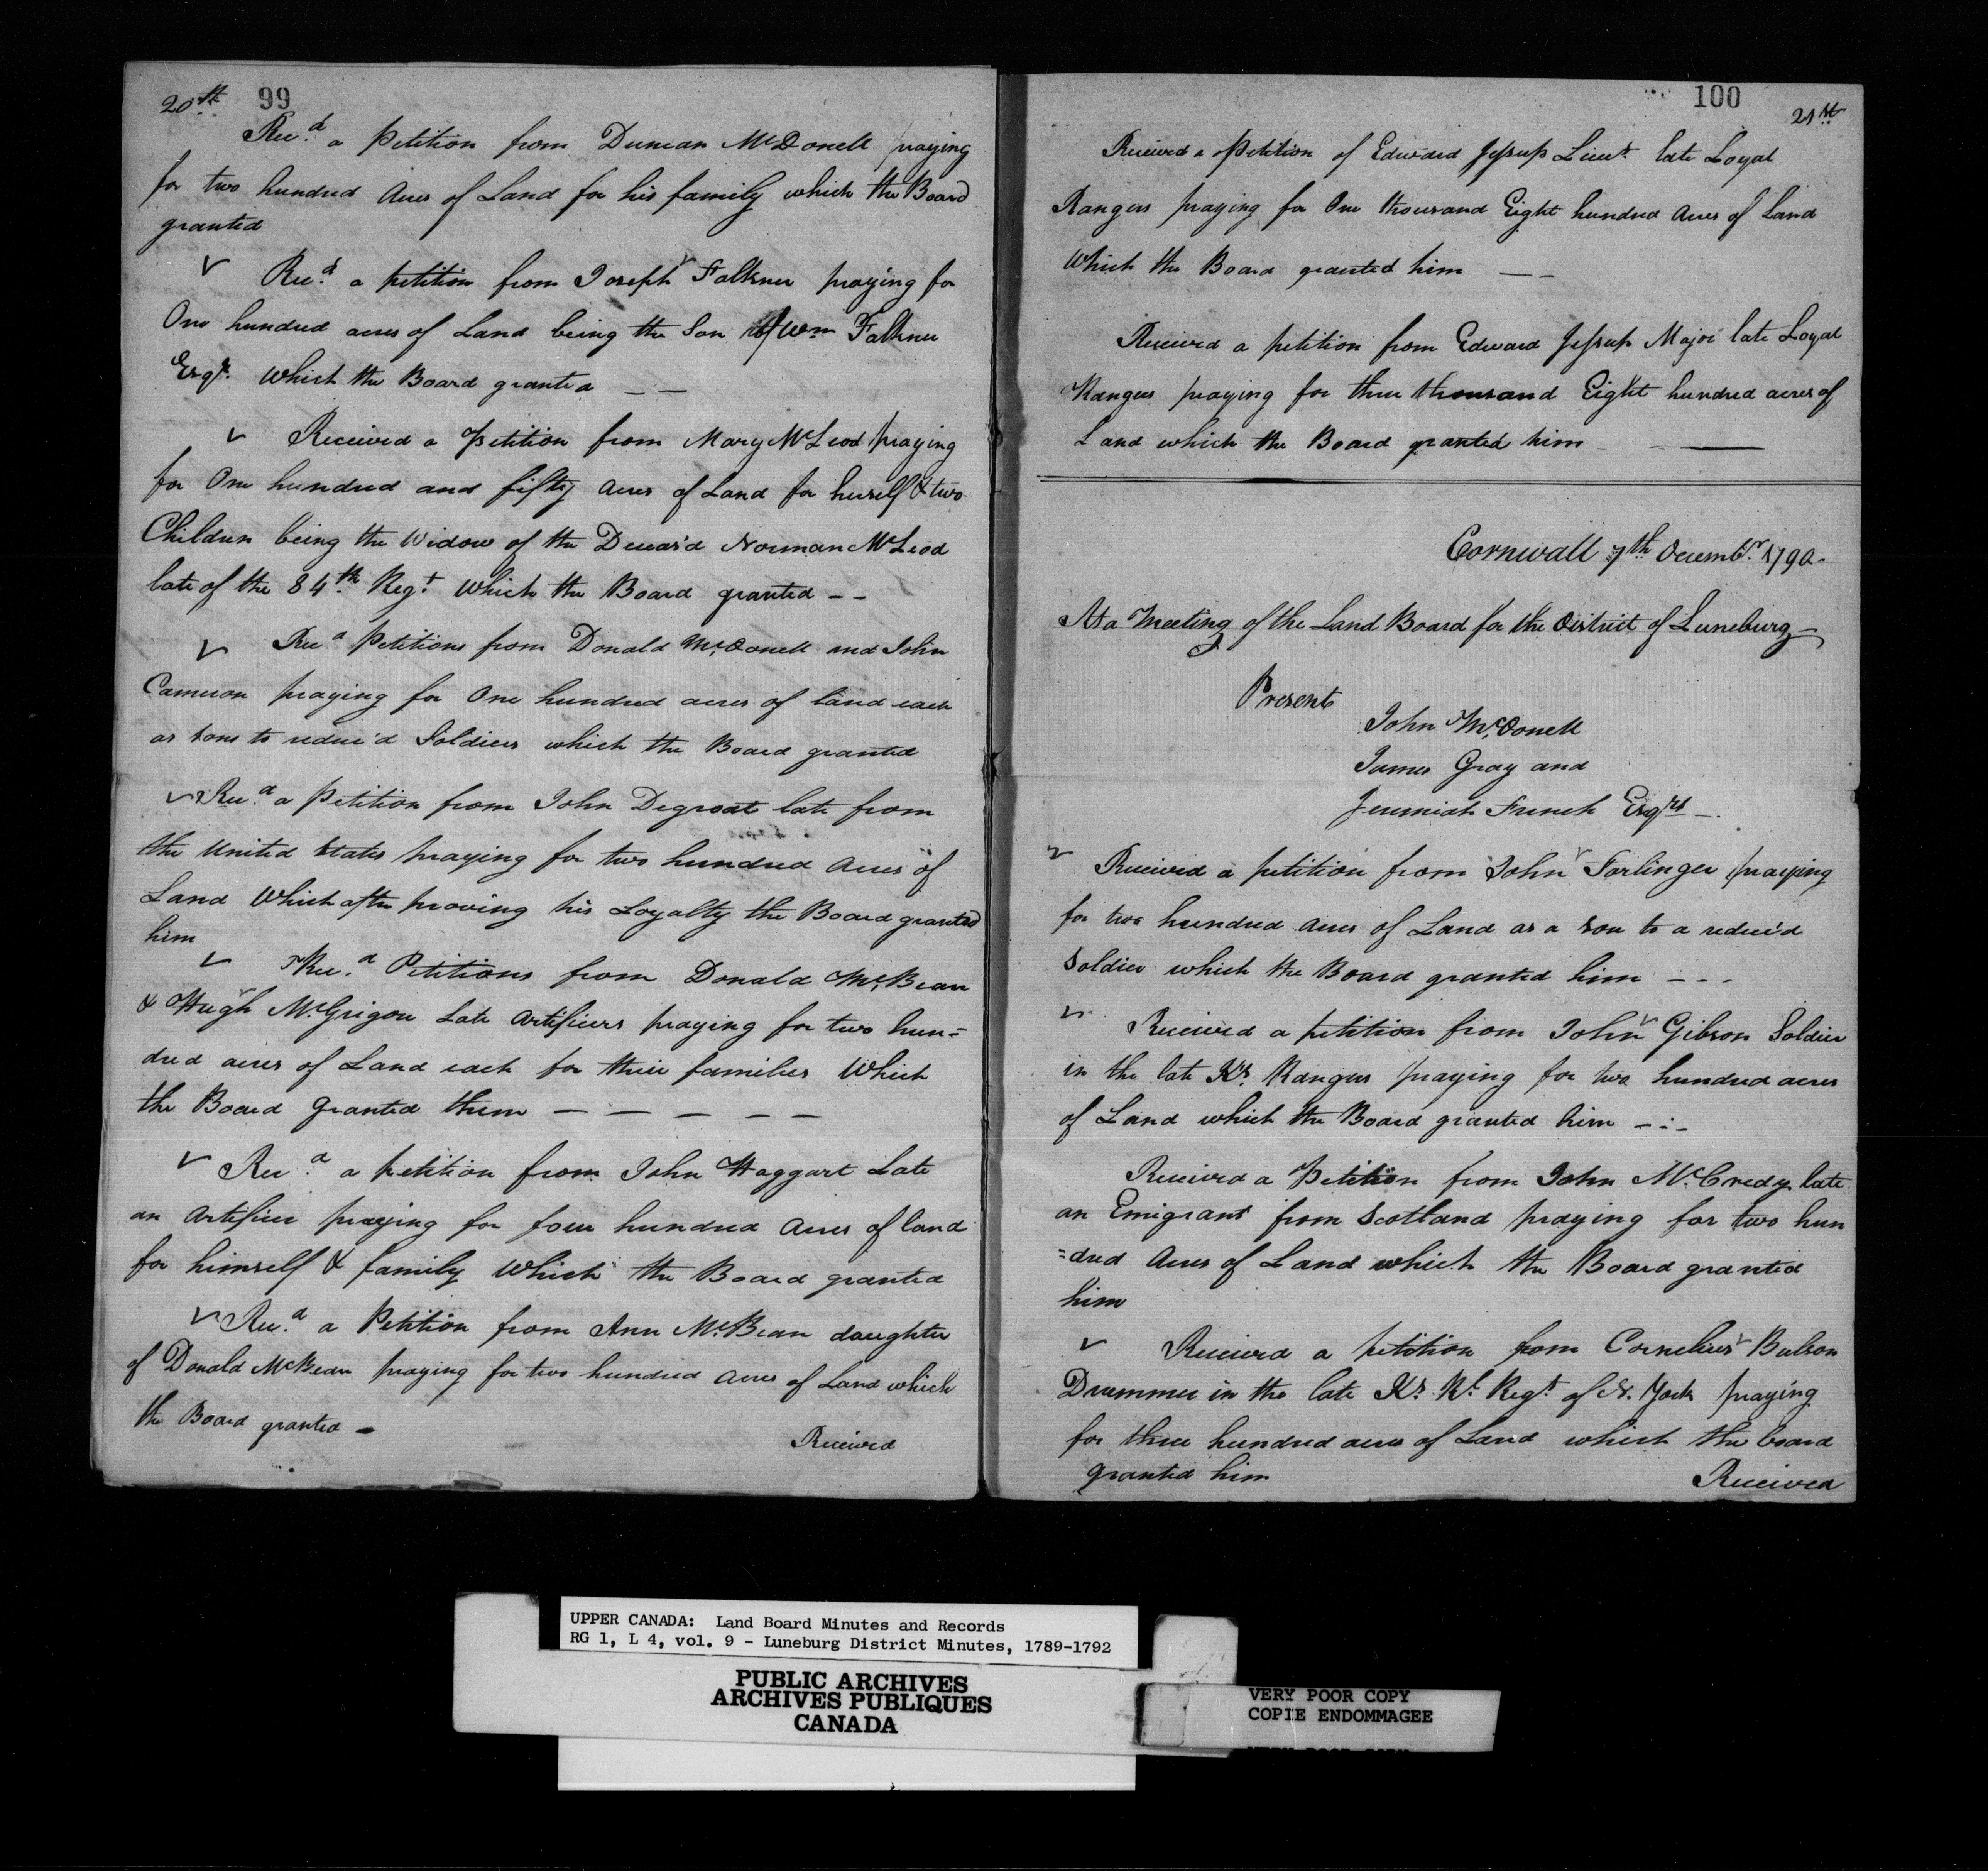 20th 99
Recd a Petition from Duncan McDonell praying
for two hundred Acres of Land for his family which the Board
granted
Recd a petition from Joseph Falkner praying for
One hundred acres of Land being the Son of Wm Falkner
Esqr. Which the Board granted — —
Received a Petition from Mary McLeod praying
for One hundred and fifty Acres of Land for herself & two
Children being the Widow of the Deceas'd Norman McLeod
late of the 84th Regt Which the Board granted – –
Recd Petitions from Donald McDonell and John
Cameron praying for One hundred acres of land each
as sons to reduc'd Soldiers which the Board granted
Recd a Petition from John Degroat late from
the United States praying for two hundred Acres of
Land Which after proving his Loyalty the Board granted
him
Recd Petitions from Donald McBean
& Hugh McGrigor Late Artificers praying for two hun=
dred acres of Land each for their families Which
the Board Granted them — — — — —
Recd a petition from John Haggart Late
an Artificer praying for four hundred Acres of land
for himself & family Which the Board granted
Recd a Petition from Ann McBean daughter
of Donald McBean praying for two hundred Acres of Land which
the Board granted –
Received
100 21st
Received a Petition of Edward Jessup Lieut. late Loyal
Rangers praying for One thousand Eight hundred Acres of Land
Which the Board granted him — —
Received a petition from Edward Jessup Major late Loyal
Rangers praying for three thousand Eight hundred acres of
Land which the Board granted him —
Cornwall 7th Decembr. 1790.
At a Meeting of the Land Board for the District of Luneburg –
Present
John McDonell
James Gray and
Jeremiah French Esqrs –
Received a petition from John Farlinger praying
for two hundred Acres of Land as a son to a reduc'd
Soldier which the Board granted him – – –
Received a petition from John Gibson Soldier
in the late Ks. Rangers praying for two hundred acres
of Land which the Board granted him – : –
Received a Petition from John McCredy late
an Emigrant from Scotland praying for two hun
=dred Acres of Land which the Board granted
him
Received a petition from Cornelius Bulson
Drummer in the late Ks. Rl. Regt. of N. York praying
for three hundred acres of Land which the board
granted him
Received
UPPER CANADA: Land Board Minutes and Records
RG 1, L 4, vol. 9 - Luneburg District Minutes, 1789-1792
PUBLIC ARCHIVES
ARCHIVES PUBLIQUES
CANADA
VERY POOR COPY
COPIE ENDOMMAGEE